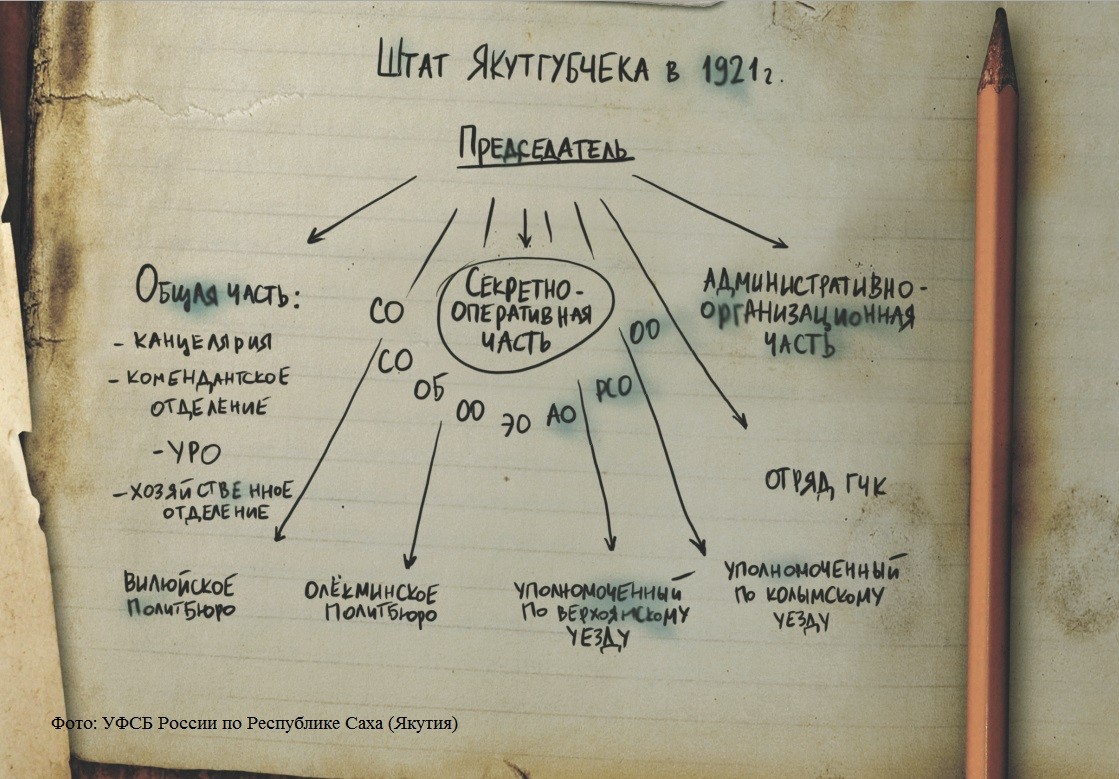 Штат Якутгубчека в 1921 г.
Председатель
Общая часть:
- канцелярия
- комендантское
отделение
- УРО
- хозяйственное
отделение
СО
СО
ОБ
ОО
ЭО
АО
РСО
ОО
Секретно-
оперативная
часть
Административно-
организационная
часть
Отряд ГЧК
Вилюйское
Политбюро
Олёкминское
Политбюро
Уполномоченный
по Верхоянскому
уезду
Уполномоченный
по Колымскому
уезду
Фото: УФСБ России по Республике Саха (Якутия)